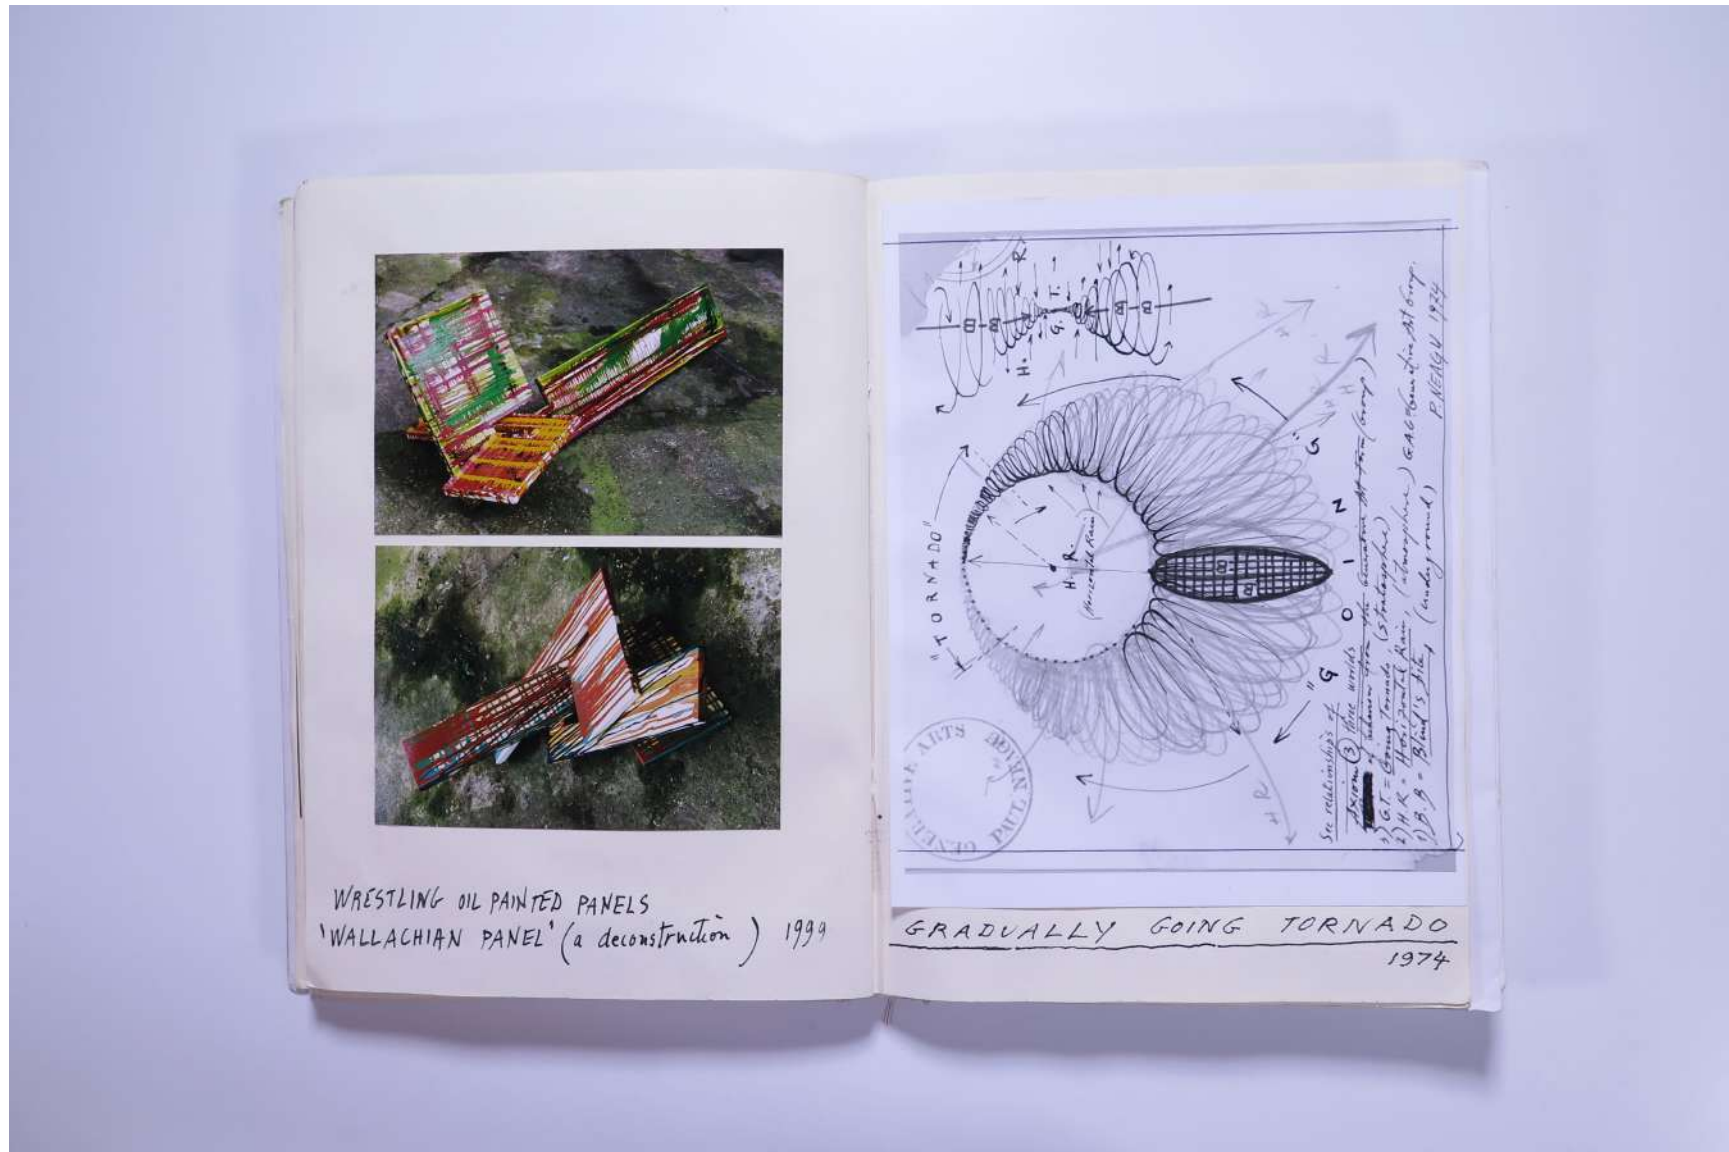 WRESTLING OIL PAINTED PANELS
'WALLACHIAN PANEL' (a deconstruction) 1999
H. G. T. R.
B B B B
"TORNADO"
H. R.
(Horizontal Rain)
B B
"GOING"
H R
H R
GENERATIVE ARTS
PAUL NEAGU
See relationships of
Axiom (3) three worlds
of the Generative Art form (Group)
3) G.T. = Going Tornado, (stratosphere)
2) H.R = Horizontal Rain, (atmosphere) G.A.G = Generative Art Group.
1) B.B = Blind's bite, (underground) P. NEAGU 1974
GRADUALLY GOING TORNADO
1974